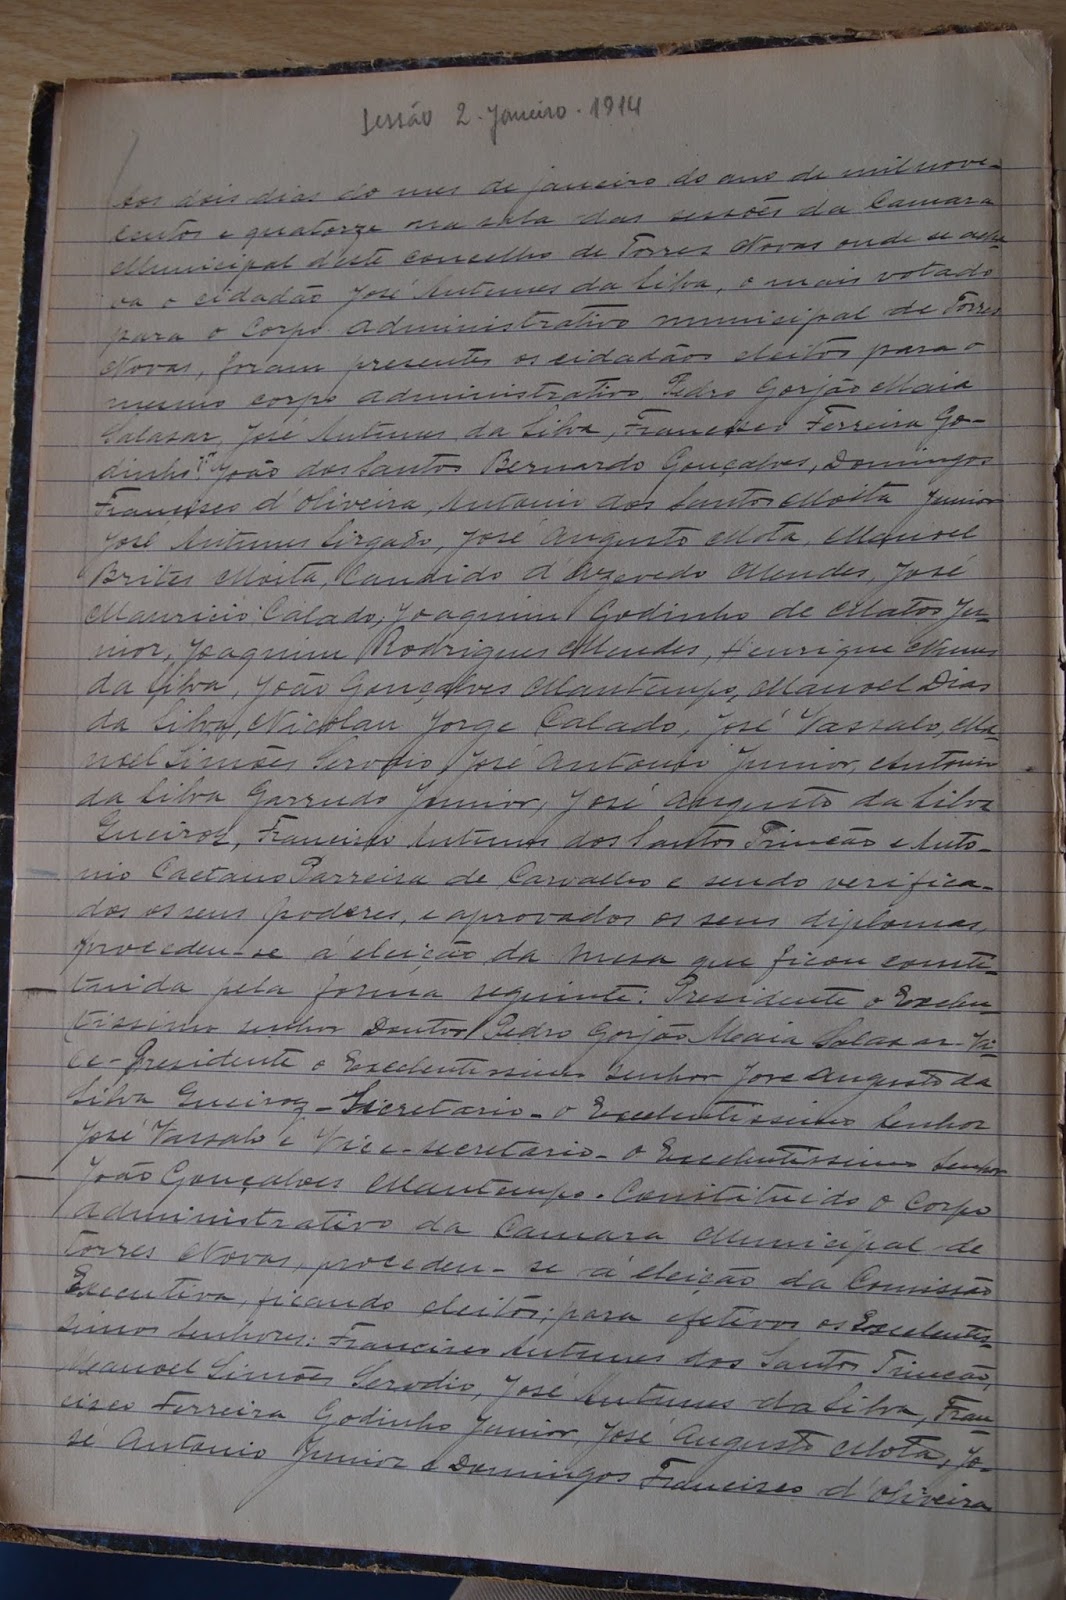 Sessão 2-Janeiro-1914
Aos dois dias do mes de janeiro do ano de mil nove-
centos e quatorze na sala das sessões da Camara
Municipal deste concelho de Torres Novas onde se acha-
va o cidadão José Antunes da Silva, o mais votado
para o Corpo administrativo municipal de Torres
Novas, foram presentes os cidadãos eleitos para o
mesmo corpo administrativo, Pedro Gorjão Maia
Salazar, José Antunes da Silva, Francisco Ferreira Go-
dinho Jor João dos Santos Bernardo Gonçalves, Domingos
Francisco d'Oliveira, Antonio dos Santos Moita Junior
José Antunes Sirgado, José Augusto Mota, Manoel
Brites Moita, Candido d'Azevedo Mendes, José
Mauricio Calado, Joaquim Godinho de Matos Ju-
nior, Joaquim Rodrigues Mendes, Henrique Nunes
da Silva, João Gonçalves Mantempo, Manoel Dias
da Silva, Nicolau Jorge Calado, José Vassalo, Ma-
noel Simões Serodio, José Antonio Junior, Antonio
da Silva Garrudo Junior, José Augusto da Silva
Gueiroz, Francisco Antunes dos Santos Trincão e Anto-
nio Caetano Parreira de Carvalho e sendo verifica-
dos os seus poderes, e aprovados os seus diplomas,
procedeu-se á eleição da Mesa que ficou consti-
tuida pela forma seguinte: Presidente o Excelen-
tissimo senhor Doutor Pedro Gorjão Maia Salazar-Vi-
ce-Presidente o Excelentissimo Senhor José Augusto da
Silva Gueiroz-Secretario-o Excelentissimo Senhor
José Vassalo e Vice-secretario-o Excelentissimo Senhor
João Gonçalves Mantempo. Constituido o Corpo
administrativo da Camara Municipal de
Torres Novas, procedeu-se á eleição da Comissão
Executiva, ficando eleitos; para efetivos os Excelentis-
simos Senhores: Francisco Antunes dos Santos Trincão,
Manoel Simões Serodio, José Antunes da Silva, Fran-
cisco Ferreira Godinho Junior, José Augusto Mota, Jo-
sé Antonio Junior e Domingos Francisco d'Oliveira